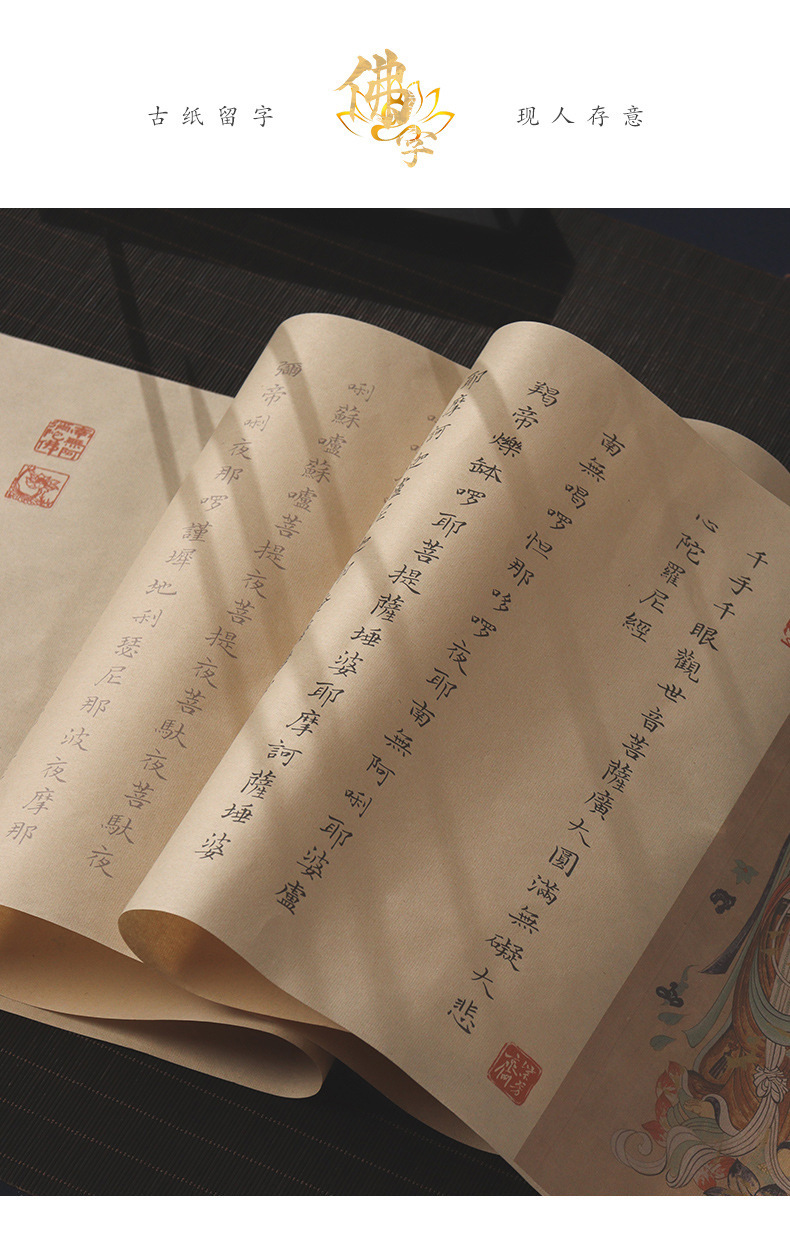 古纸留字
佛字
现人存意
千手千眼觀世音菩薩廣大圓滿無礙大悲
心陀羅尼經
南無喝啰怛那哆啰夜耶南無阿唎耶婆盧
羯帝爍缽啰耶菩提薩埵婆耶摩訶薩埵婆
耶摩訶
唎蘇嚧蘇嚧菩提夜菩提夜菩馱夜菩馱夜
彌帝唎夜那啰謹墀地利瑟尼那波夜摩那
南無阿彌陀佛